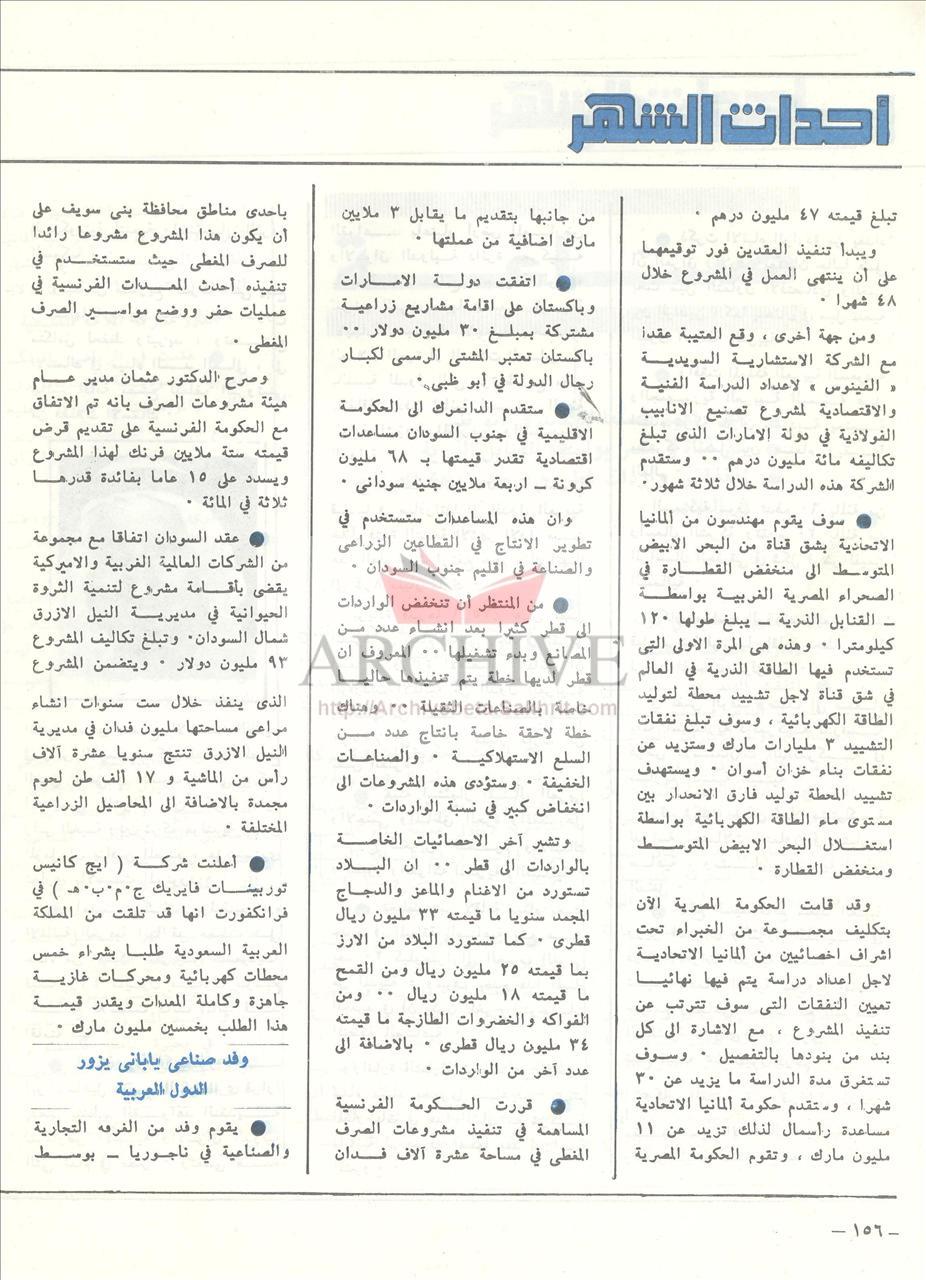 أحداث الشهر
تبلغ قيمته ٤٧ مليون درهم ٠
ويبدأ تنفيذ العقدين فور توقيعهما
على أن ينتهى العمل في المشروع خلال
٤٨ شهرا ٠
ومن جهة أخرى ، وقع العتيبة عقدا
مع الشركة الاستشارية السويدية
« الفينوس » لاعداد الدراسة الفنية
والاقتصادية لمشروع تصنيع الانابيب
الفولاذية في دولة الامارات الذى تبلغ
تكاليفه مائة مليون درهم ٠٠ وستقدم
الشركة هذه الدراسة خلال ثلاثة شهور٠
● سوف يقوم مهندسون من المانيا
الاتحادية بشق قناة من البحر الابيض
المتوسط الى منخفض القطارة في
الصحراء المصرية الغربية بواسطة
ــ القنابل الذرية ــ يبلغ طولها ١٢٠
كيلومترا ٠ وهذه هى المرة الاولى التى
تستخدم فيها الطاقة الذرية في العالم
في شق قناة لاجل تشييد محطة لتوليد
الطاقة الكهربائية ، وسوف تبلغ نفقات
التشييد ٣ مليارات مارك وستزيد عن
نفقات بناء خزان أسوان ٠ ويستهدف
تشييد المحطة توليد فارق الانحدار بين
مستوى ماء الطاقة الكهربائية بواسطة
استغلال البحر الابيض المتوسط
ومنخفض القطارة ٠
وقد قامت الحكومة المصرية الآن
بتكليف مجموعة من الخبراء تحت
اشراف اخصائيين من ألمانيا الاتحادية
لاجل اعداد دراسة يتم فيها نهائيا
تعيين النفقات التى سوف تترتب عن
تنفيذ المشروع ، مع الاشارة الى كل
بند من بنودها بالتفصيل ٠ وسوف
تستغرق مدة الدراسة ما يزيد عن ٣٠
شهرا ، وستقدم حكومة ألمانيا الاتحادية
مساعدة رأسمال لذلك تزيد عن ١١
مليون مارك ، وتقوم الحكومة المصرية
من جانبها بتقديم ما يقابل ٣ ملايين
مارك اضافية من عملتها ٠
● اتفقت دولة الامارات
وباكستان على اقامة مشاريع زراعية
مشتركة بمبلغ ٣٠ مليون دولار ٠٠
باكستان تعتبر المشتى الرسمى لكبار
رجال الدولة في أبو ظبي٠
● ستقدم الدانمرك الى الحكومة
الاقليمية في جنوب السودان مساعدات
اقتصادية تقدر قيمتها بـ ٦٨ مليون
كرونة ــ اربعة ملايين جنيه سودانى ٠
وان هذه المساعدات ستستخدم في
تطوير الانتاج في القطاعين الزراعى
والصناعة في اقليم جنوب السودان ٠
● من المنتظر أن تنخفض الواردات
الى قطر كثيرا بعد انشاء عدد من
المصانع وبدء تشغيلها ٠٠ المعروف ان
قطر لديها خطة يتم تنفيذها حاليا
خاصة بالصناعات الثقيلة ٠٠ وهناك
خطة لاحقة خاصة بانتاج عدد من
السلع الاستهلاكية ٠ والصناعات
الخفيفة ٠ وستؤدى هذه المشروعات الى
انخفاض كبير في نسبة الواردات ٠
وتشير آخر الاحصائيات الخاصة
بالواردات الى قطر ٠٠ ان البلاد
تستورد من الاغنام والماعز والدجاج
المجمد سنويا ما قيمته ٣٣ مليون ريال
قطرى ٠ كما تستورد البلاد من الارز
بما قيمته ٢٥ مليون ريال ومن القمح
ما قيمته ١٨ مليون ريال ٠٠ ومن
الفواكه والخضروات الطازجة ما قيمته
٣٤ مليون ريال قطرى ٠ بالاضافة الى
عدد آخر من الواردات ٠
● قررت الحكومة الفرنسية
المساهمة في تنفيذ مشروعات الصرف
المغطى في مساحة عشرة آلاف فدان
باحدى مناطق محافظة بنى سويف على
أن يكون هذا المشروع مشروعا رائدا
للصرف المغطى حيث ستستخدم في
تنفيذه أحدث المعدات الفرنسية في
عمليات حفر ووضع مواسير الصرف
المغطى ٠
وصرح الدكتور عثمان مدير عام
هيئة مشروعات الصرف بانه تم الاتفاق
مع الحكومة الفرنسية على تقديم قرض
قيمته ستة ملايين فرنك لهذا المشروع
ويسدد على ١٥ عاما بفائدة قدرها
ثلاثة في المائة ٠
● عقد السودان اتفاقا مع مجموعة
من الشركات العالمية الغربية والاميركية
يقضى بأقامة مشروع لتنمية الثروة
الحيوانية في مديرية النيل الازرق
شمال السودان٠ وتبلغ تكاليف المشروع
٩٣ مليون دولار ٠ ويتضمن المشروع
الذى ينفذ خلال ست سنوات انشاء
مراعى مساحتها مليون فدان في مديرية
النيل الازرق تنتج سنويا عشرة آلاف
رأس من الماشية و ١٧ ألف طن لحوم
مجمدة بالاضافة الى المحاصيل الزراعية
المختلفة ٠
● أعلنت شركة ( ايج كانيس
توربينات فابريك ج٠م٠ب٠هـ ) في
فرانكفورت انها قد تلقت من المملكة
العربية السعودية طلبا بشراء خمس
محطات كهربائية ومحركات غازية
جاهزة وكاملة المعدات ويقدر قيمة
هذا الطلب بخمسين مليون مارك ٠
وفد صناعى يابانى يزور
الدول العربية
● يقوم وفد من الغرفه التجارية
والصناعية في ناجوريا ــ بوسط
ــ ١٥٦ ــ
ARCHIVE
http://Archivebeta.Sakhrit.com